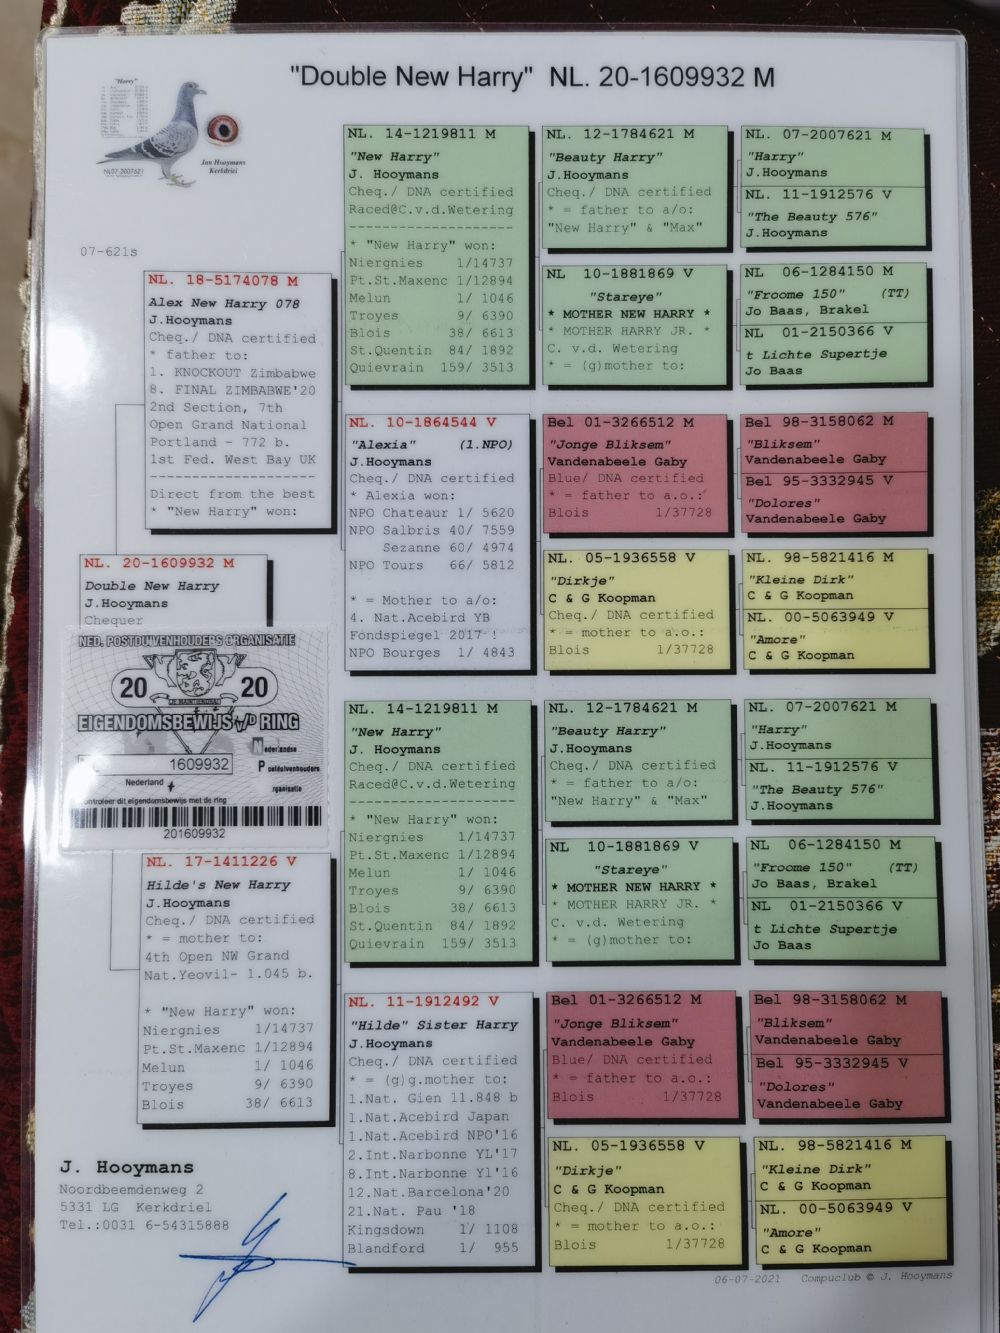 "Double New Harry"  NL. 20-1609932 M
"Harry"
Jan Hooymans
Kerkdriel
NL07-2007621
07-621s
NL. 18-5174078 M
Alex New Harry 078
J.Hooymans
Cheq./ DNA certified
* father to:
1. KNOCKOUT Zimbabwe
8. FINAL ZIMBABWE'20
2nd Section, 7th
Open Grand National
Portland - 772 b.
1st Fed. West Bay UK
--------------------
Direct from the best
* "New Harry" won:
NL. 20-1609932 M
Double New Harry
J.Hooymans
Chequer
NED. POSTDUIVENHOUDERS ORGANISATIE
20 20
JE MAINTIENDRAI
EIGENDOMSBEWIJS v/d RING
Nederlandse
1609932
Postduivenhouders
Nederland
rganisatie
ontroleer dit eigendomsbewijs met de ring
201609932
NL. 17-1411226 V
Hilde's New Harry
J.Hooymans
Cheq./ DNA certified
* = mother to:
4th Open NW Grand
Nat.Yeovil- 1.045 b.
* "New Harry" won:
Niergnies 1/14737
Pt.St.Maxenc 1/12894
Melun 1/ 1046
Troyes 9/ 6390
Blois 38/ 6613
NL. 14-1219811 M
"New Harry"
J. Hooymans
Cheq./ DNA certified
Raced@C.v.d.Wetering
--------------------
* "New Harry" won:
Niergnies 1/14737
Pt.St.Maxenc 1/12894
Melun 1/ 1046
Troyes 9/ 6390
Blois 38/ 6613
St.Quentin 84/ 1892
Quievrain 159/ 3513
NL. 10-1864544 V
"Alexia" (1.NPO)
J.Hooymans
Cheq./ DNA certified
* Alexia won:
NPO Chateaur 1/ 5620
NPO Salbris 40/ 7559
Sezanne 60/ 4974
NPO Tours 66/ 5812
* = Mother to a/o:
4. Nat.Acebird YB
Fondspiegel 2017 !
NPO Bourges 1/ 4843
NL. 14-1219811 M
"New Harry"
J. Hooymans
Cheq./ DNA certified
Raced@C.v.d.Wetering
--------------------
* "New Harry" won:
Niergnies 1/14737
Pt.St.Maxenc 1/12894
Melun 1/ 1046
Troyes 9/ 6390
Blois 38/ 6613
St.Quentin 84/ 1892
Quievrain 159/ 3513
NL. 11-1912492 V
"Hilde" Sister Harry
J.Hooymans
Cheq./ DNA certified
* = (g)g.mother to:
1.Nat. Gien 11.848 b
1.Nat.Acebird Japan
1.Nat.Acebird NPO'16
2.Int.Narbonne YL'17
8.Int.Narbonne Yl'16
12.Nat.Barcelona'20
21.Nat. Pau '18
Kingsdown 1/ 1108
Blandford 1/ 955
NL. 12-1784621 M
"Beauty Harry"
J.Hooymans
Cheq./ DNA certified
* = father to a/o:
"New Harry" & "Max"
NL 10-1881869 V
"Stareye"
* MOTHER NEW HARRY *
* MOTHER HARRY JR. *
C. v.d. Wetering
* = (g)mother to:
Bel 01-3266512 M
"Jonge Bliksem"
Vandenabeele Gaby
Blue/ DNA certified
* = father to a.o.:
Blois 1/37728
NL. 05-1936558 V
"Dirkje"
C & G Koopman
Cheq./ DNA certified
* = mother to a.o.:
Blois 1/37728
NL. 12-1784621 M
"Beauty Harry"
J.Hooymans
Cheq./ DNA certified
* = father to a/o:
"New Harry" & "Max"
NL 10-1881869 V
"Stareye"
* MOTHER NEW HARRY *
* MOTHER HARRY JR. *
C. v.d. Wetering
* = (g)mother to:
Bel 01-3266512 M
"Jonge Bliksem"
Vandenabeele Gaby
Blue/ DNA certified
* = father to a.o.:
Blois 1/37728
NL. 05-1936558 V
"Dirkje"
C & G Koopman
Cheq./ DNA certified
* = mother to a.o.:
Blois 1/37728
NL. 07-2007621 M
"Harry"
J.Hooymans
NL. 11-1912576 V
"The Beauty 576"
J.Hooymans
NL 06-1284150 M
"Froome 150" (TT)
Jo Baas, Brakel
NL 01-2150366 V
t Lichte Supertje
Jo Baas
Bel 98-3158062 M
"Bliksem"
Vandenabeele Gaby
Bel 95-3332945 V
"Dolores"
Vandenabeele Gaby
NL. 98-5821416 M
"Kleine Dirk"
C & G Koopman
NL. 00-5063949 V
"Amore"
C & G Koopman
NL. 07-2007621 M
"Harry"
J.Hooymans
NL. 11-1912576 V
"The Beauty 576"
J.Hooymans
NL 06-1284150 M
"Froome 150" (TT)
Jo Baas, Brakel
NL 01-2150366 V
t Lichte Supertje
Jo Baas
Bel 98-3158062 M
"Bliksem"
Vandenabeele Gaby
Bel 95-3332945 V
"Dolores"
Vandenabeele Gaby
NL. 98-5821416 M
"Kleine Dirk"
C & G Koopman
NL. 00-5063949 V
"Amore"
C & G Koopman
J. Hooymans
Noordbeemdenweg 2
5331 LG Kerkdriel
Tel.:0031 6-54315888
06-07-2021 Compuclub © J. Hooymans